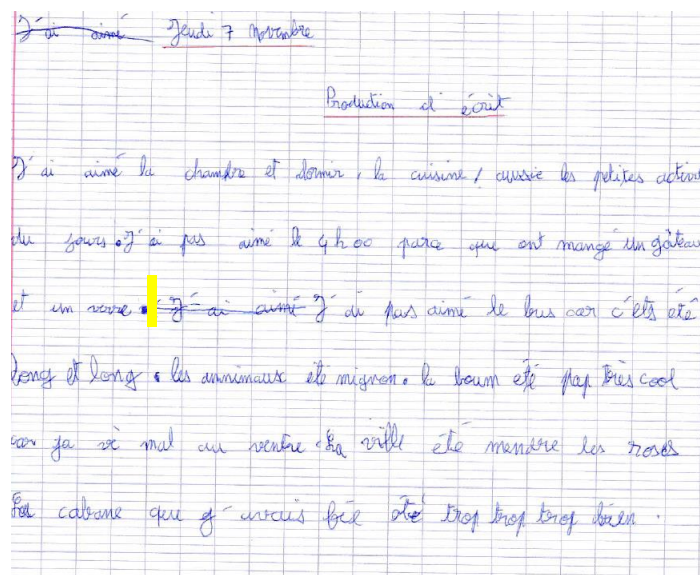 J'ai aimé Jeudi 7 Novembre
Production d'écrit
J'ai aimé la chambre et dormir, la cuisine, aussie les petites activi
du jours. J'ai pas aimé le 4h00 parce que ont mangé un gâteau
et un verre. J'ai aimé J'ai pas aimé le bus car c'ets été
long et long. les annimaux été mignon. la boum été pap très cool
car ja vé mal au ventre. La ville été mendre les roses
La cabane que g'avais fée été trop trop trop bien.